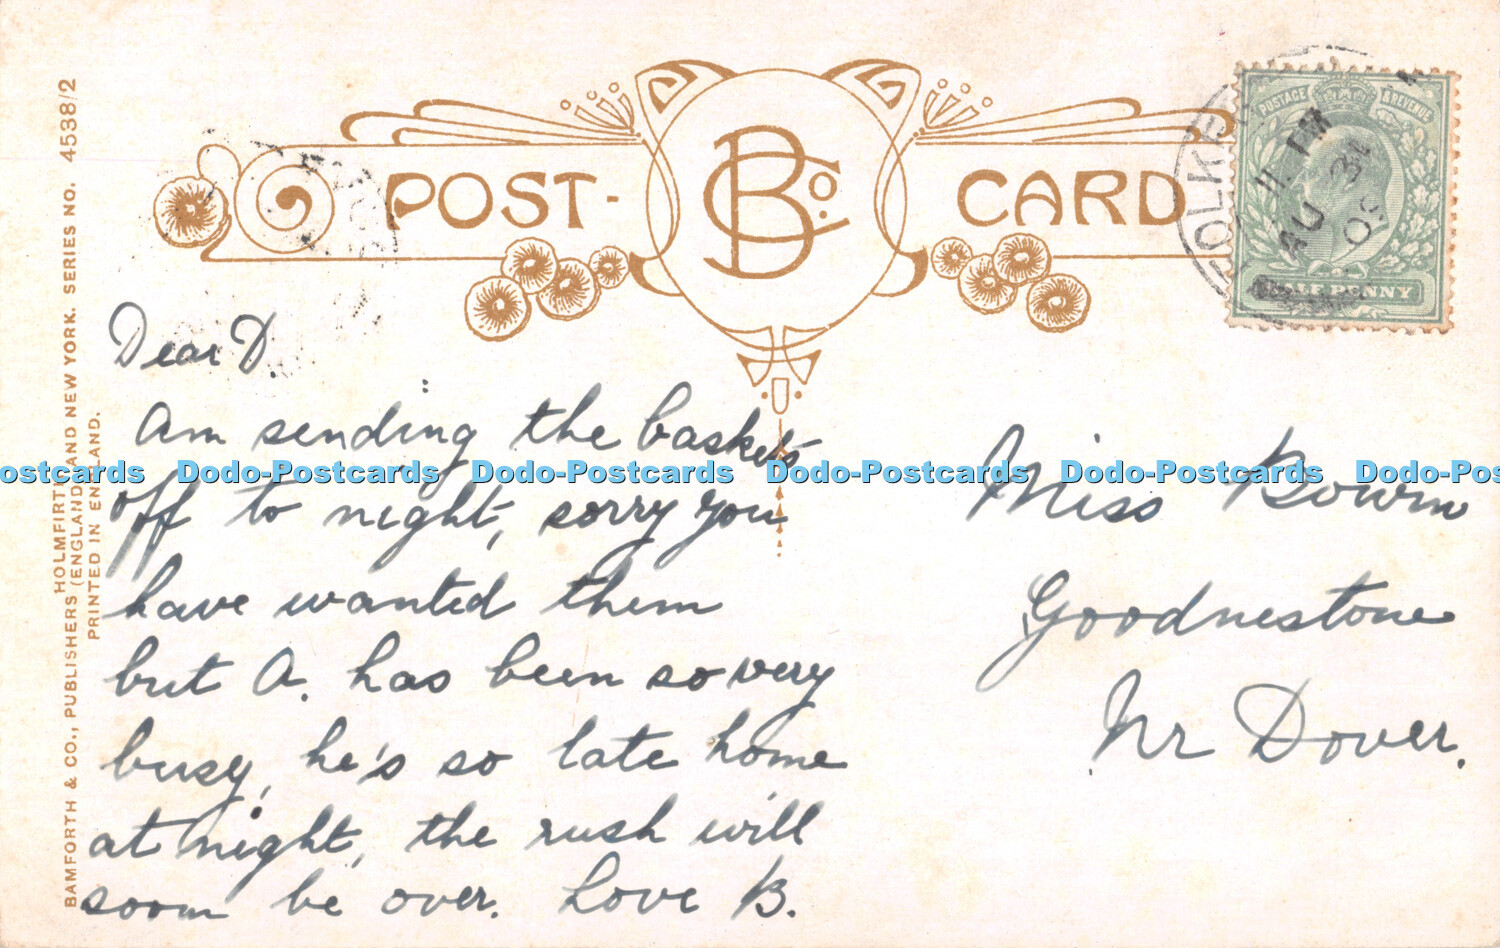 POST-CARD
B Co.
POSTAGE & REVENUE
HALF PENNY
FOLKE
11 PM
AU 31
09
Dear D.
Am sending the baskets
off to night, sorry you
have wanted them
but A. has been so very
busy, he's so late home
at night, the rush will
soon be over. Love B.
Miss
Goodnestone
Nr Dover.
BAMFORTH & CO., PUBLISHERS (ENGLAND) AND NEW YORK. SERIES NO. 4538/2
HOLMFIRTH
PRINTED IN ENGLAND.
ostcards Dodo-Postcards Dodo-Postcards Dodo-Postcards Dodo-Postcards Dodo-Pos